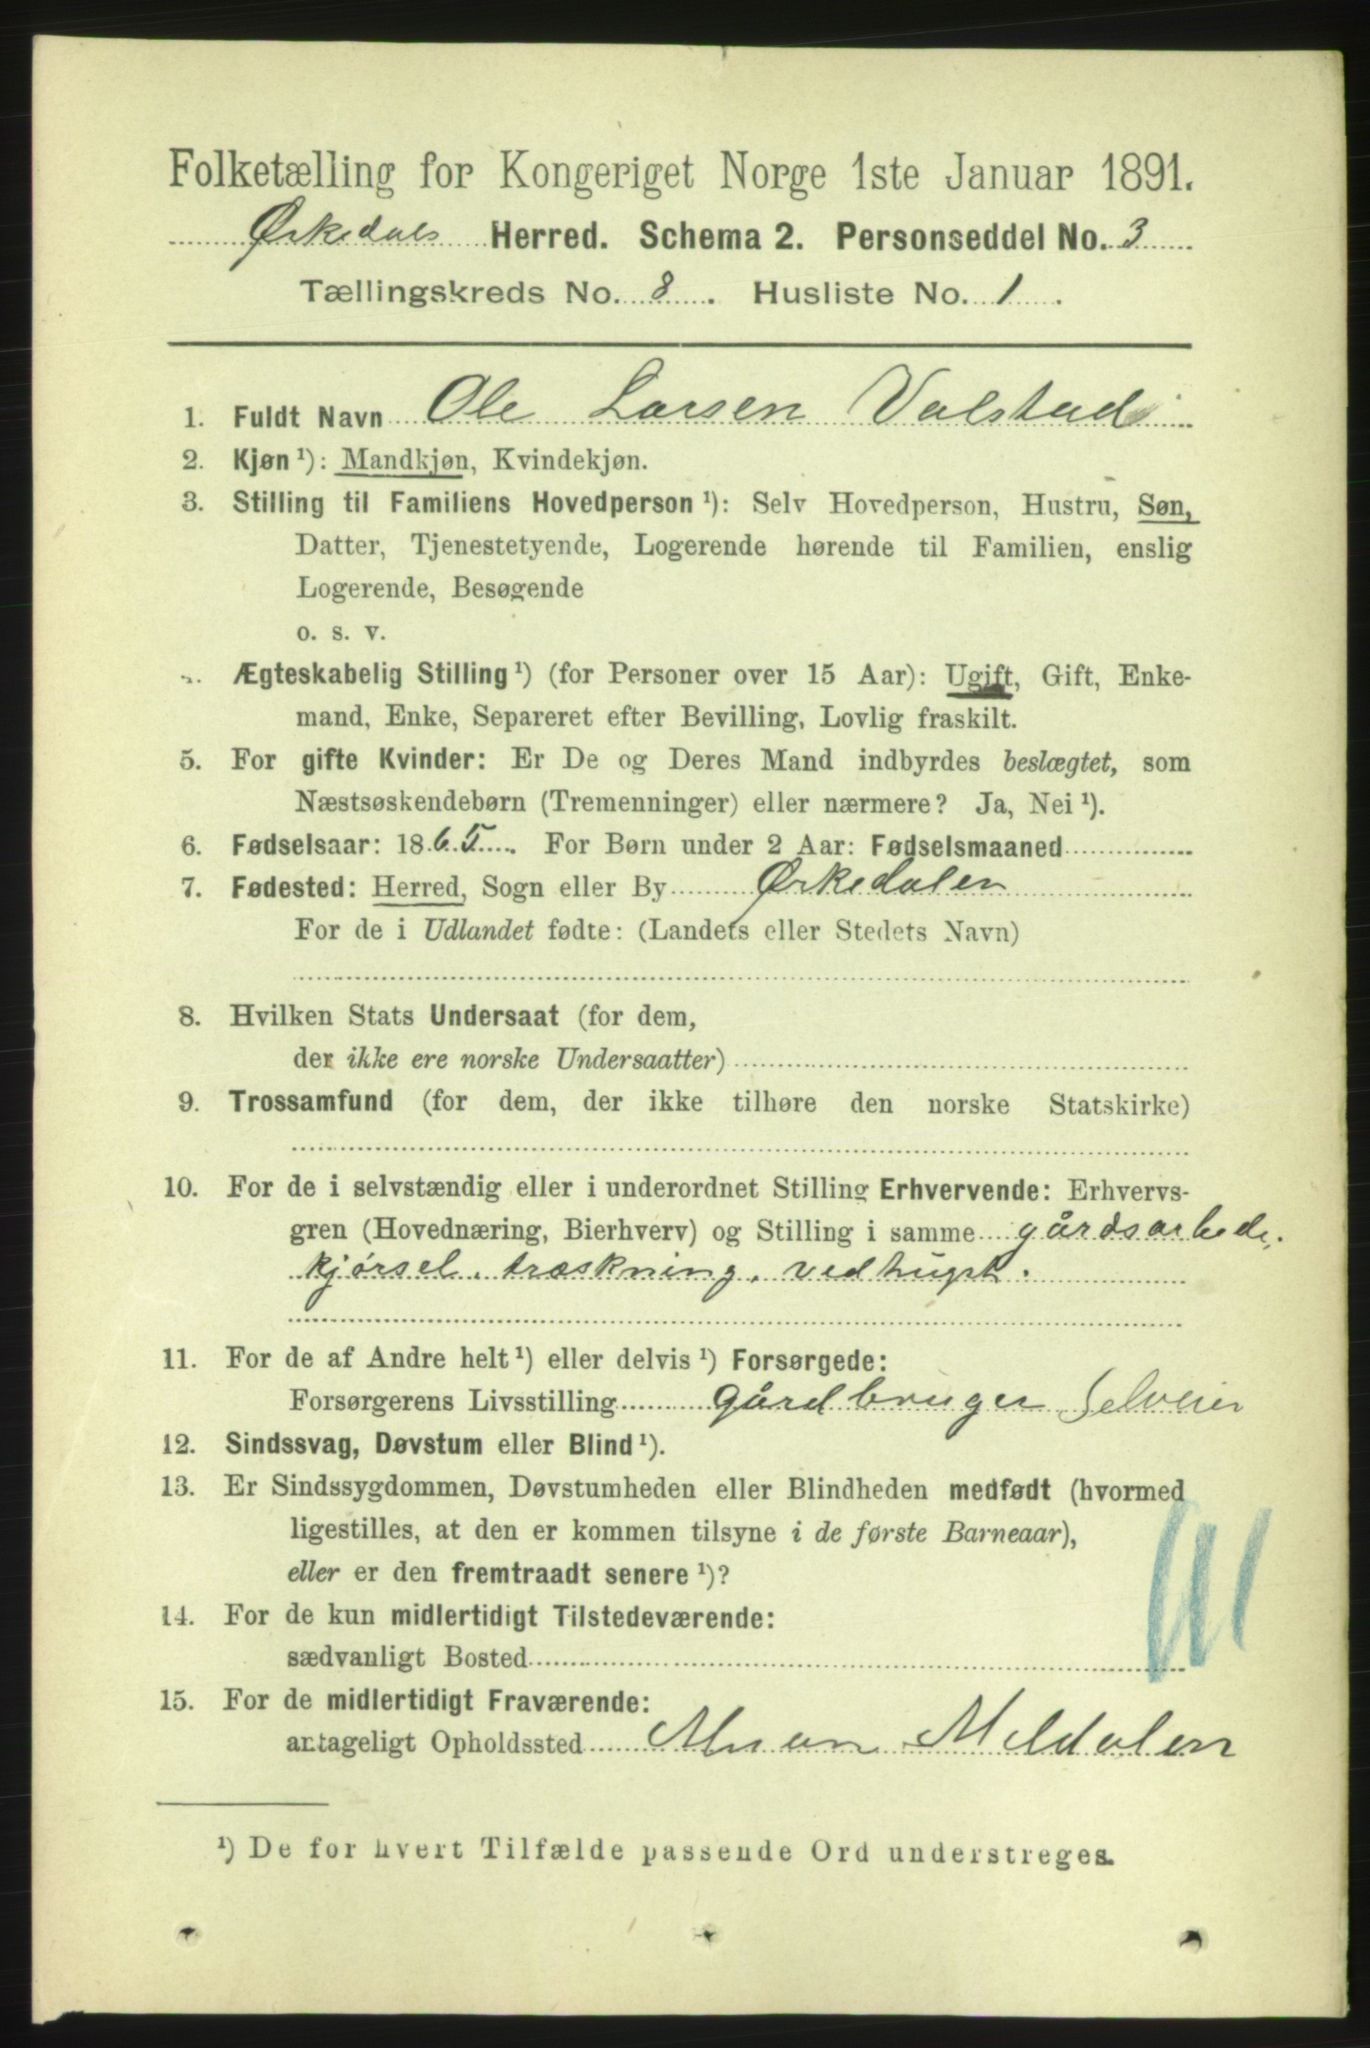 Folketælling for Kongeriget Norge 1ste Januar 1891.
Ørkedals Herred. Schema 2. Personseddel No. 3
Tællingskreds No. 8. Husliste No. 1.
1. Fuldt Navn Ole Larsen Valstad
2. Kjøn ¹): Mandkjøn, Kvindekjøn.
3. Stilling til Familiens Hovedperson ¹): Selv Hovedperson, Hustru, Søn,
Datter, Tjenestetyende, Logerende hørende til Familien, enslig
Logerende, Besøgende
o. s. v.
Ægteskabelig Stilling ¹) (for Personer over 15 Aar): Ugift, Gift, Enke-
mand, Enke, Separeret efter Bevilling, Lovlig fraskilt.
5. For gifte Kvinder: Er De og Deres Mand indbyrdes beslægtet, som
Næstsøskendebørn (Tremenninger) eller nærmere? Ja, Nei ¹).
6. Fødselsaar: 1865. For Børn under 2 Aar: Fødselsmaaned
7. Fødested: Herred, Sogn eller By Ørkedalen
For de i Udlandet fødte: (Landets eller Stedets Navn)
8. Hvilken Stats Undersaat (for dem,
der ikke ere norske Undersaatter)
9. Trossamfund (for dem, der ikke tilhøre den norske Statskirke)
10. For de i selvstændig eller i underordnet Stilling Erhvervende: Erhvervs-
gren (Hovednæring, Bierhverv) og Stilling i samme gårdsarbede,
kjørsel, træskning, vedhugst.
11. For de af Andre helt ¹) eller delvis ¹) Forsørgede:
Forsørgerens Livsstilling gårdbruger Selveier
12. Sindssvag, Døvstum eller Blind ¹).
13. Er Sindssygdommen, Døvstumheden eller Blindheden medfødt (hvormed
ligestilles, at den er kommen tilsyne i de første Barneaar),
eller er den fremtraadt senere ¹)?
14. For de kun midlertidigt Tilstedeværende:
sædvanligt Bosted
15. For de midlertidigt Fraværende:
antageligt Opholdssted Meldalen
¹) De for hvert Tilfælde passende Ord understreges.